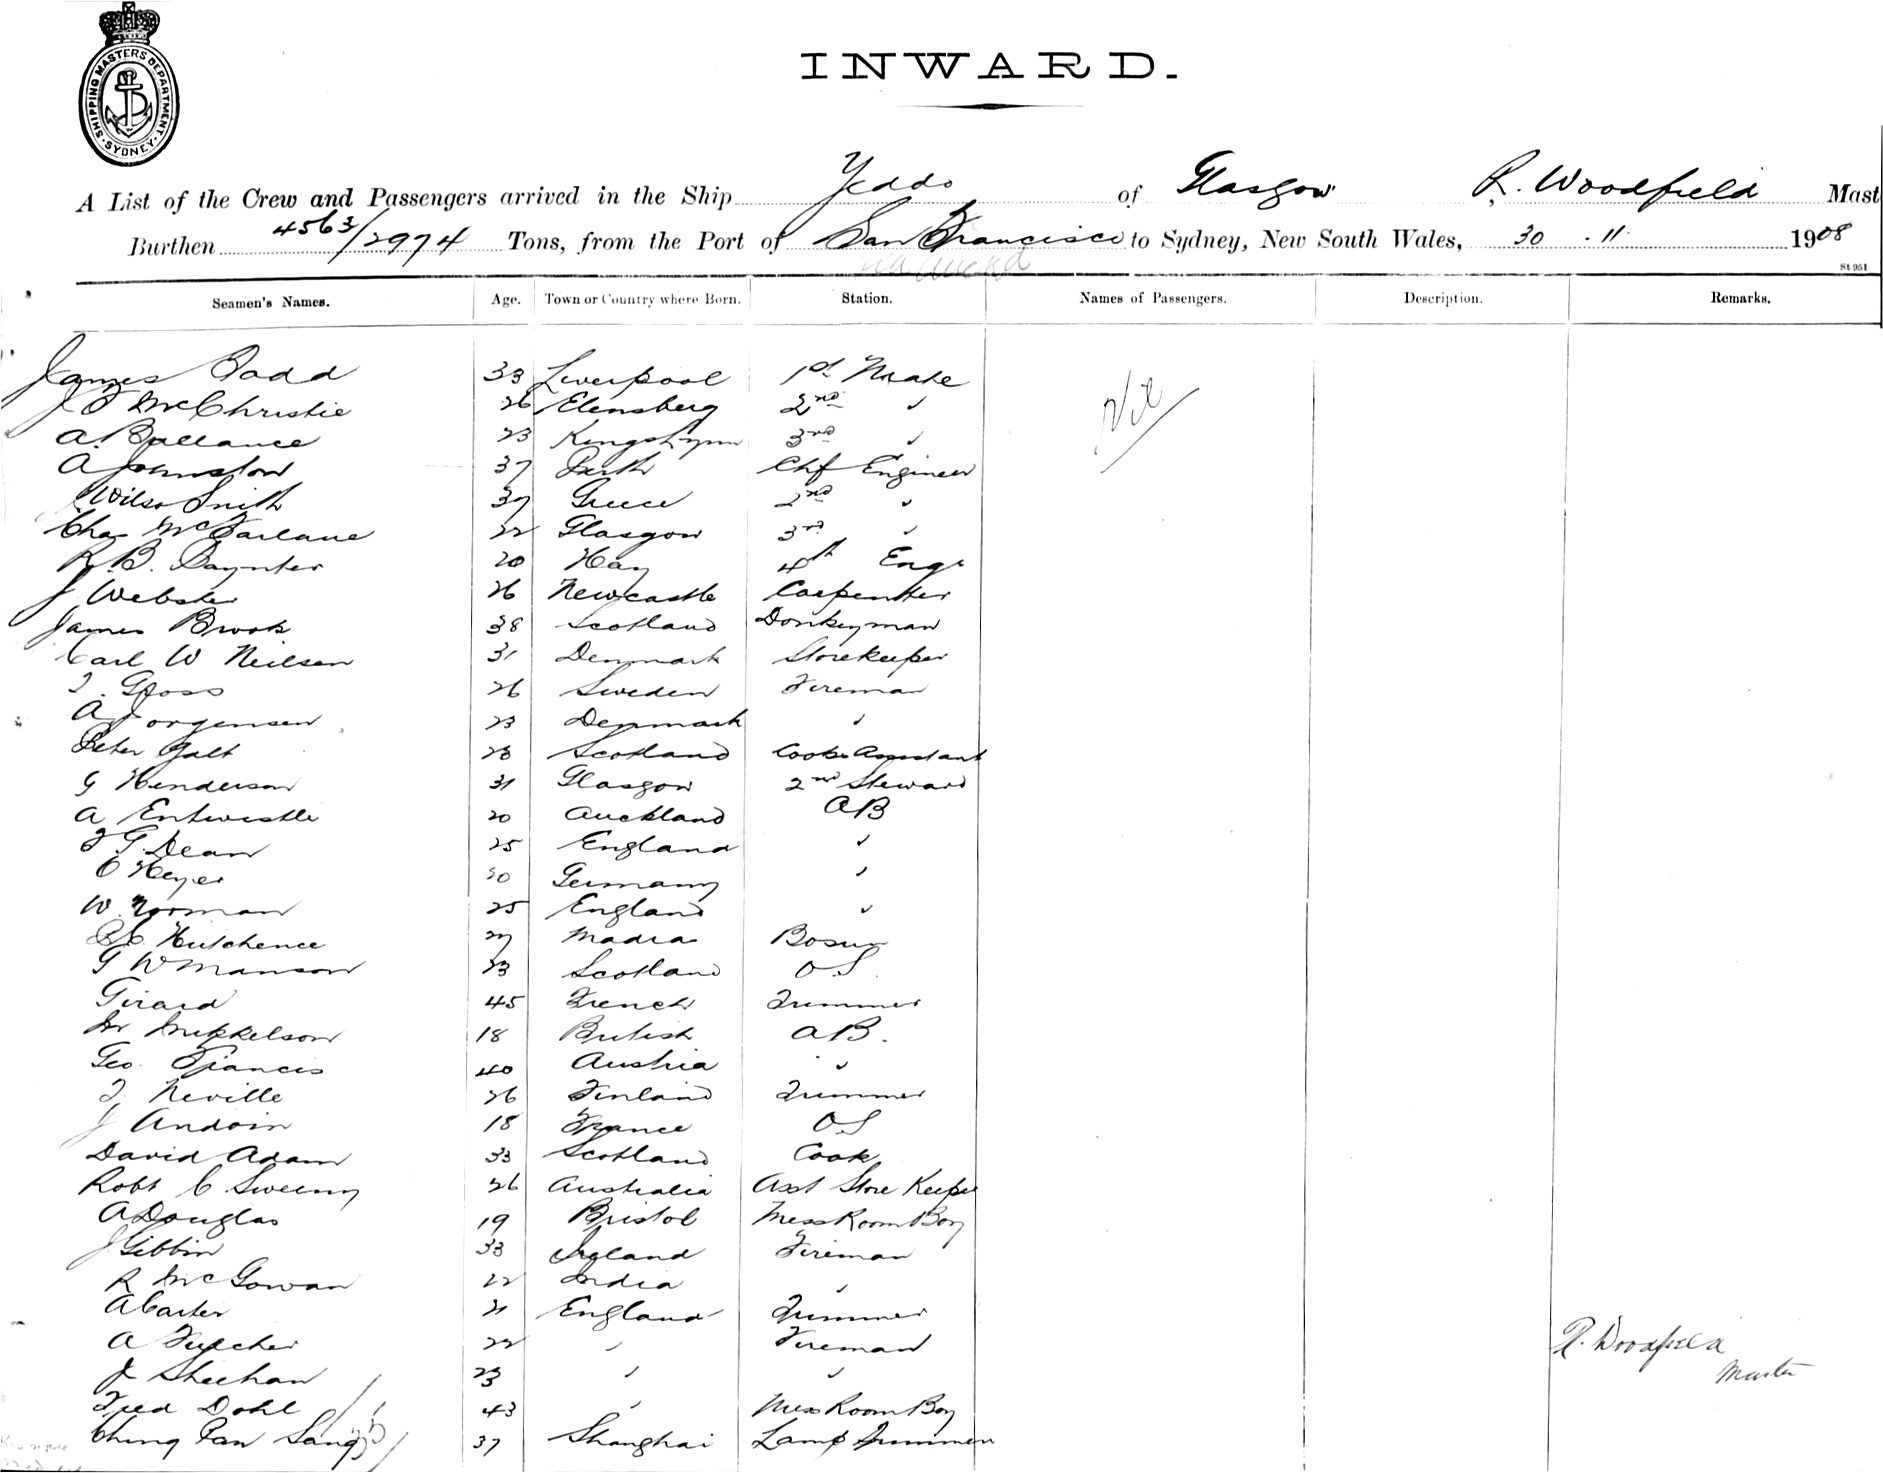 SHIPPING MASTERS DEPARTMENT SYDNEY
INWARD.
A List of the Crew and Passengers arrived in the Ship Yeddo of Glasgow R. Woodfield Mast
Burthen 4563/2974 Tons, from the Port of San Francisco to Sydney, New South Wales, 30 . 11 1908
via Auckd
St 951
Seamen's Names. Age. Town or Country where Born. Station. Names of Passengers. Description. Remarks.
James 33 Liverpool 1st Mate Nil
McChristie 26 Elensberg 2nd "
A. Ballance 23 Kings Lynn 3rd "
A Johnston 37 Perth Chf Engineer
Wilso Smith 39 Greece 2nd "
Chas McFarlane 22 Glasgow 3rd "
R. B. Paynter 20 Hay 4th Engr
J Webster 26 Newcastle Carpenter
James Brook 38 Scotland Donkeyman
Carl W Neilsen 31 Denmark Storekeeper
26 Sweden Fireman
A Jorgensen 23 Denmark "
Peter Galt 23 Scotland Cooks Assistant
G Henderson 31 Glasgow 2nd Steward
A Entwistle 20 Auckland AB
G. Dean 25 England "
Heyer 20 Germany "
W. Norman 25 England "
Hutchence 27 Bosun
G W Manson 23 Scotland OS.
Girard 45 French Trimmer
M Mikkelson 18 British AB.
Geo. Francis 40 Austria "
T. Neville 26 Finland Trimmer
J Andoin 18 France OS
David Adam 33 Scotland Cook
Robt C Sweeny 26 Australia Asst Store Keeper
A Douglas 19 Bristol Mess Room Boy
J Gibbin 33 Ireland Fireman
R McGowan 22 India "
A Carter 21 England Trimmer
A Futcher 22 " Fireman
J Sheehan 23 " "
Fred Dohl 43 " Mess Room Boy
Ching Pan Sang 37 Shanghai Lamp Trimmer
R. Woodfield
Master